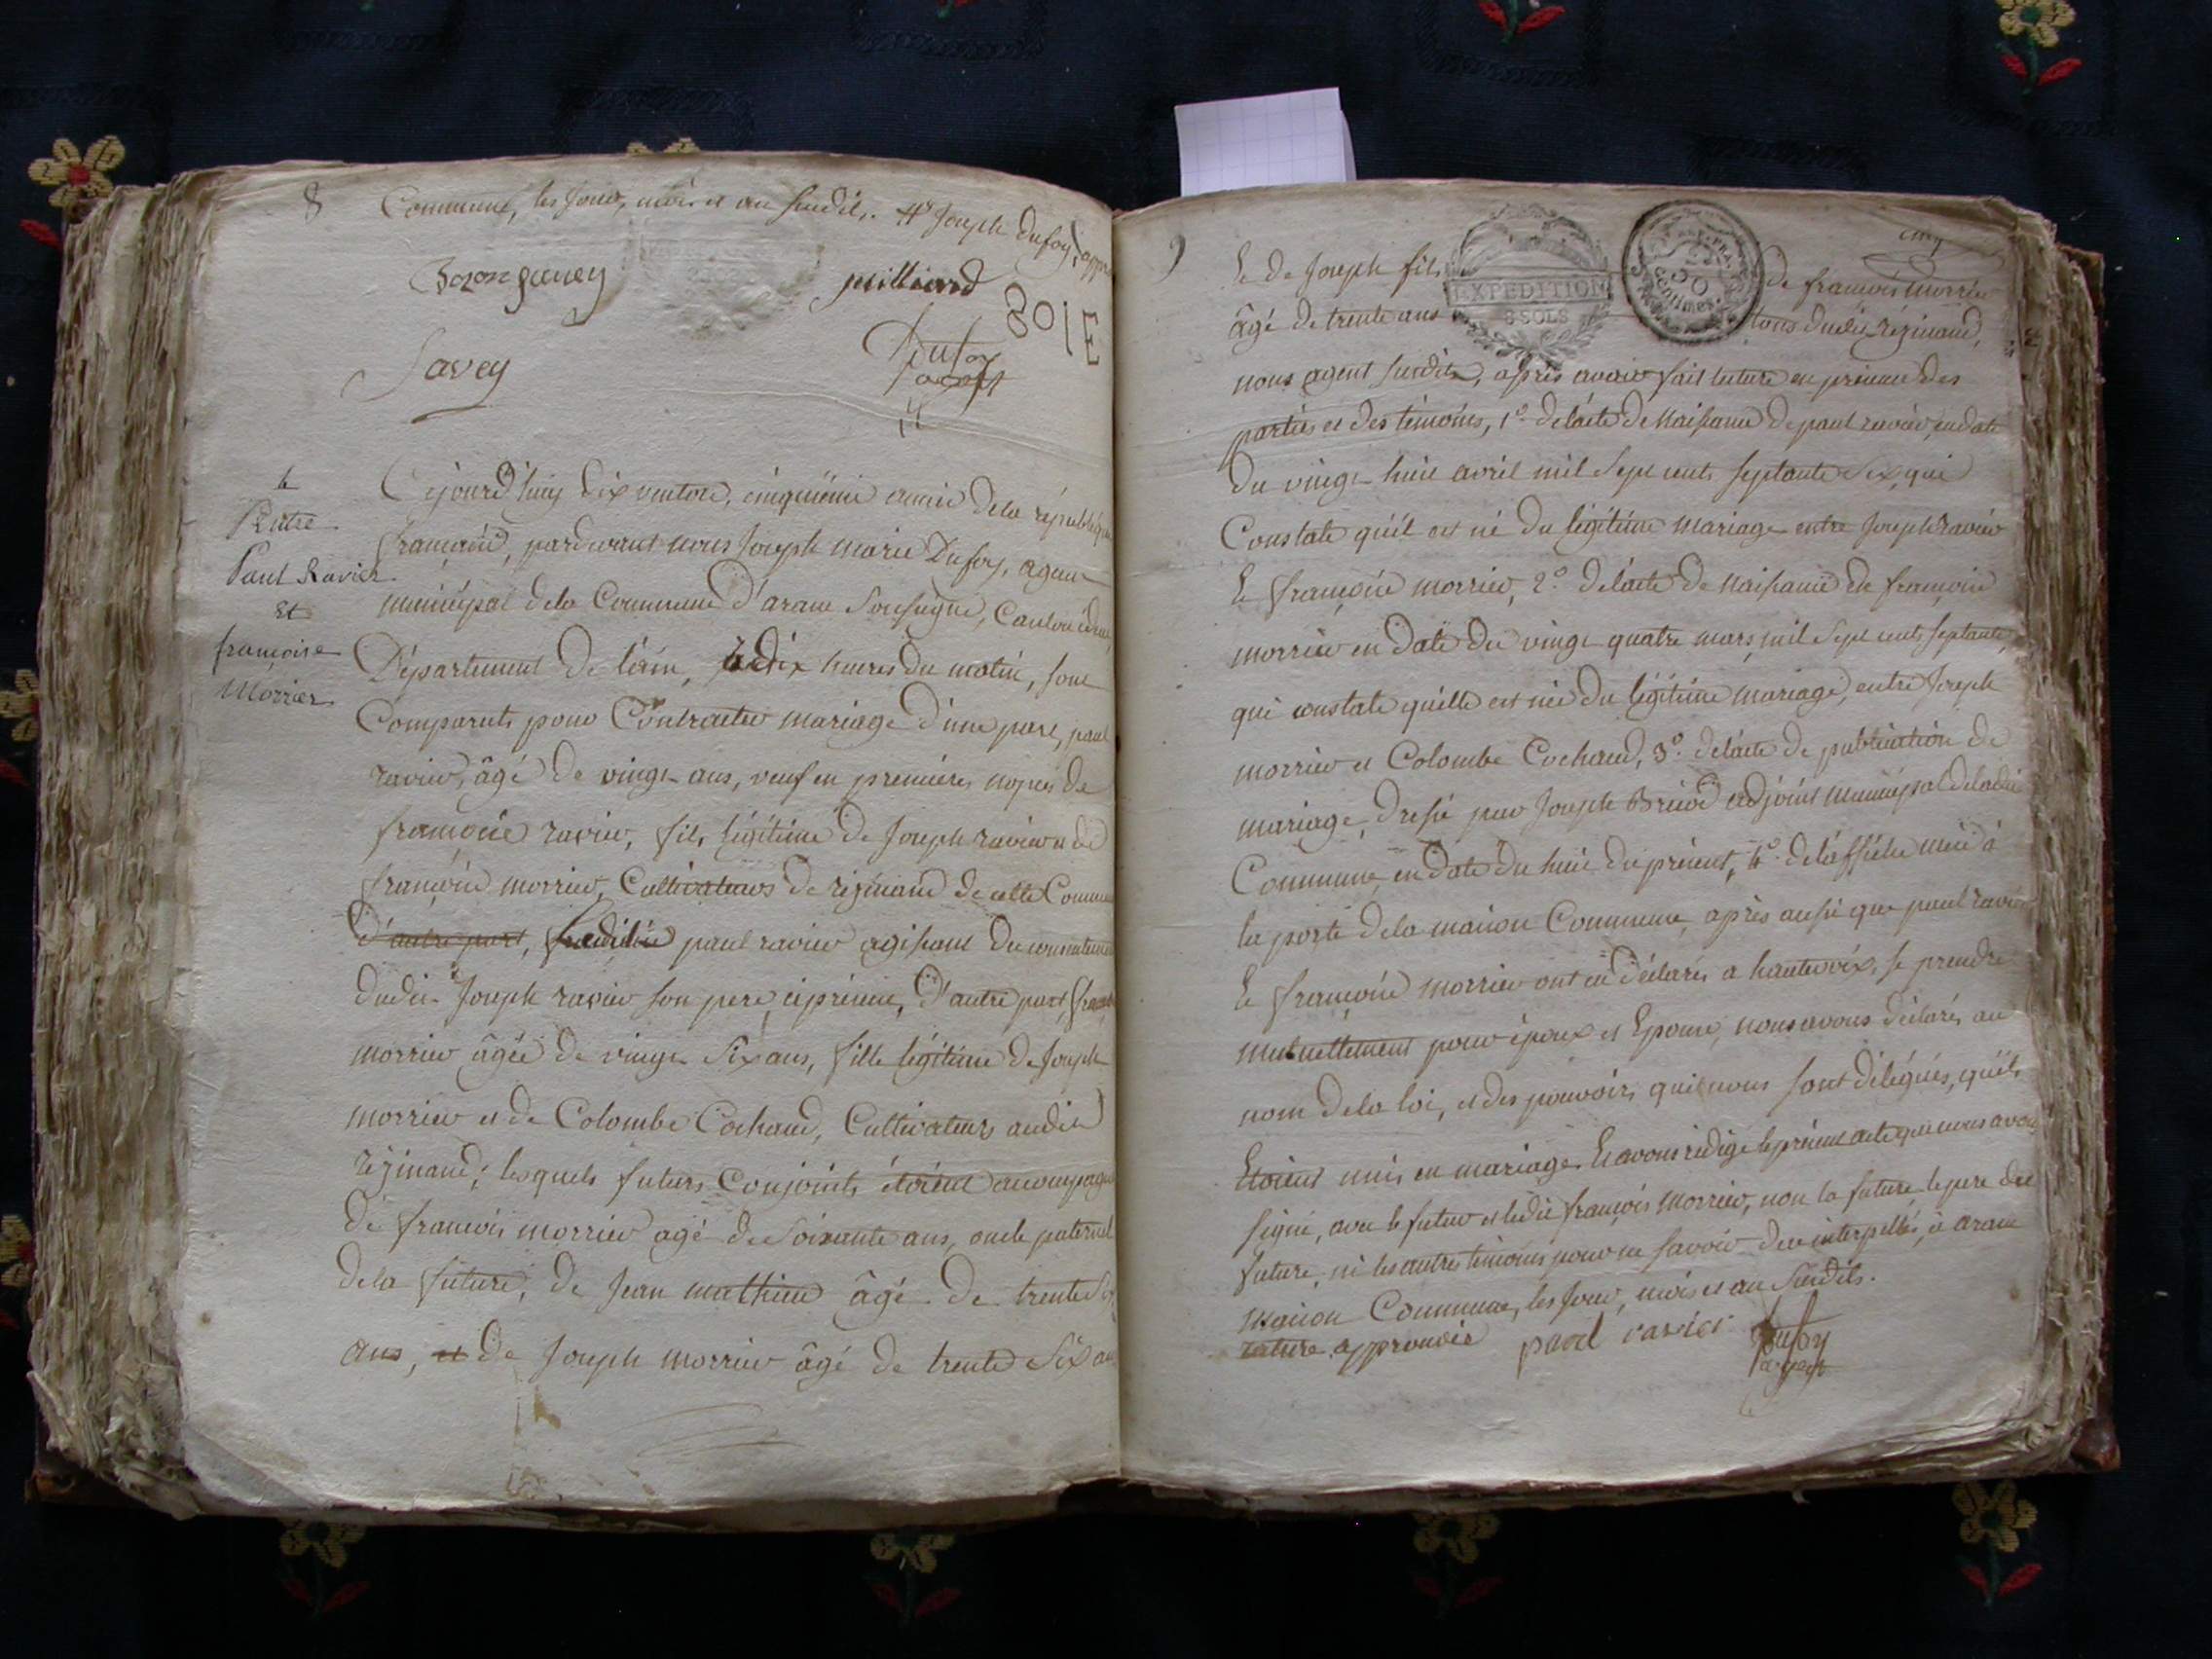 8
Commune, les jour, mois et an susdits. Joseph Dufoy,
Savey
milliand
Savey
Dufoy
agent
801E
4
Entre
Paul Ravier
Et
françoise
Morrier
Cejourd'huy dix ventose, cinquième année de la république
françoise, pardevant nous Joseph marie Dufoy, agent
municipal de la Commune d'arane Sousugne, Canton idem
Département de l'ain, à dix heures du matin, sont
Comparuts pour Contracter mariage d'une part, paul
ravier, âgé de vingt ans, veuf en premières nopces de
françoise ravier, fils légitime de Joseph ravier et de
françoise morrier, Cultivateurs de réginand de cette Commune
d'autre part, paul ravier agissant du consentement
dudit Joseph ravier son pere, ci présent, d'autre part,
morrier âgée de vingt Six ans, fille légitime de Joseph
morrier et de Colombe Cochand, Cultivateurs audit
réginand; lesquels futurs Conjoints étoient accompagnés
de françois morrier agé de Soixante ans, oncle paternel
de la future, de Jean mathieu âgé de trente
ans, et de Joseph morrier âgé de trente Six ans
9
cinq
& de Joseph fils de françois morrier
EXPEDITION
8 SOLS
50
Centimes
âgé de trente ans tous dudit réginand,
nous agent susdit, après avoir fait lecture en présence des
parties et des témoins, 1º. de l'acte de Naissance de paul ravier, en date
du vingt huit avril mil Sept cents septante Six, qui
Constate qu'il est né du légitime mariage entre Joseph ravier
& françoise morrier, 2º. de l'acte de Naissance de françoise
morrier en date du vingt quatre mars mil Sept cents septante,
qui constate qu'elle est née du légitime mariage, entre Joseph
morrier et Colombe Cochand, 3º. de l'acte de publication de
mariage, dressé par Joseph Briod adjoint municipal de ladite
Commune, en date du huit du présent, 4º. de l'affiche mise à
la porte de la maison Commune, après aussi que paul ravier
& françoise morrier ont eu déclarés a haute voix, se prendre
mutuellement pour époux et Epouse, nous avons déclarés au
nom de la loi, et des pouvoirs qui nous sont délégués, qu'ils
Etoient unis en mariage. & avons rédigé le présent acte que nous avons
signé, avec le futur et ledit françois morrier, non la future, le pere du
future, ni les autres témoins pour ne savoir de ce interpellés, à arane
maison Commune, les jour, mois et an susdits.
rature approuvée
paul ravier
Dufoy
agent